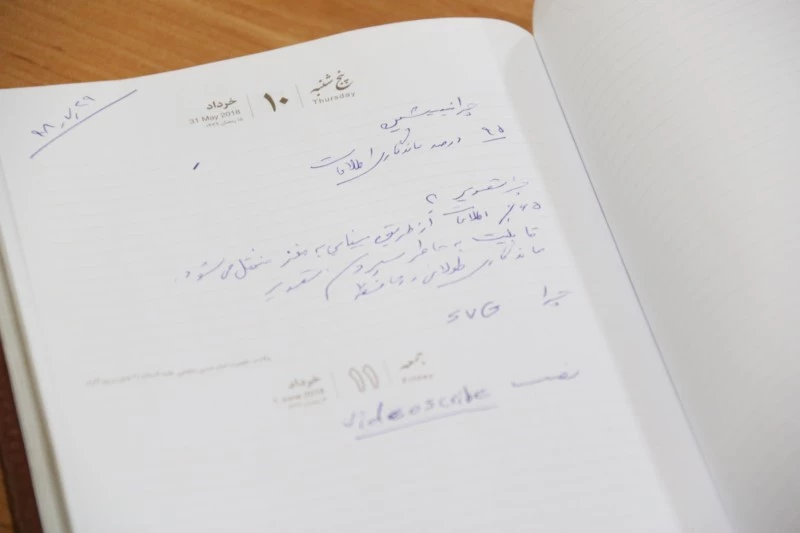 ۹۸_۷_۲۹
پنج شنبه
Thursday
۱۰
خرداد
31 May 2018
چرا انیمیشن
۹۵ درصد ماندگاری اطلاعات
چرا تصویر ؟
۶۵٪ اطلاعات از طریق بینایی به مغز منتقل می شود.
قابلیت به خاطر سپردن تصویر
ماندگاری طولانی در حافظه
چرا SVG
جمعه
Friday
۱۱
خرداد
1 June 2018
نصب videoscribe